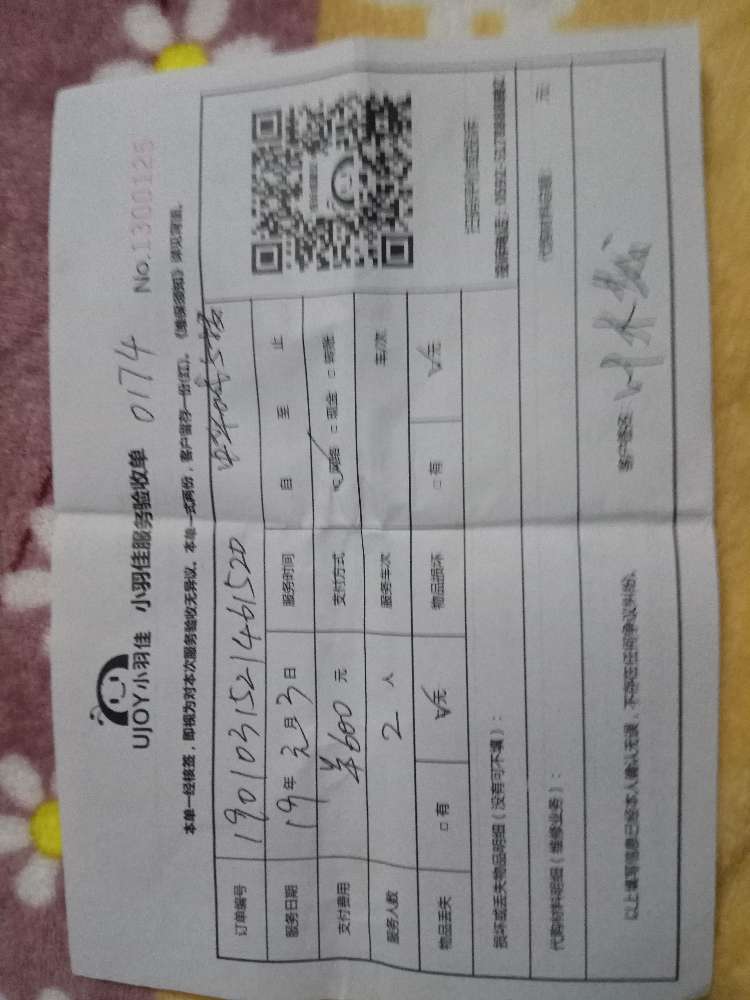 UJOY小羽佳 小羽佳服务验收单 0174 No.1300125
本单一经核签，即视为对本次服务验收无异议。本单一式两份，客户留存一份(红)。《维保须知》详见背面。
订单编号 1901031521461520
服务日期 19年元月3日 服务时间 自 至 止
支付费用 ¥600元 支付方式 ☑网络 □现金 □转账
服务人数 2人 服务车次 车/次
物品丢失 □有 ☑无 物品损坏 □有 ☑无
扫码评价或投诉
损坏或丢失物品明细（没有可不填）：
代购材料明细（维修业务）： 代购材料总额： 元
以上填写信息已经本人确认无误，不存在任何争议纠纷。 客户签还：